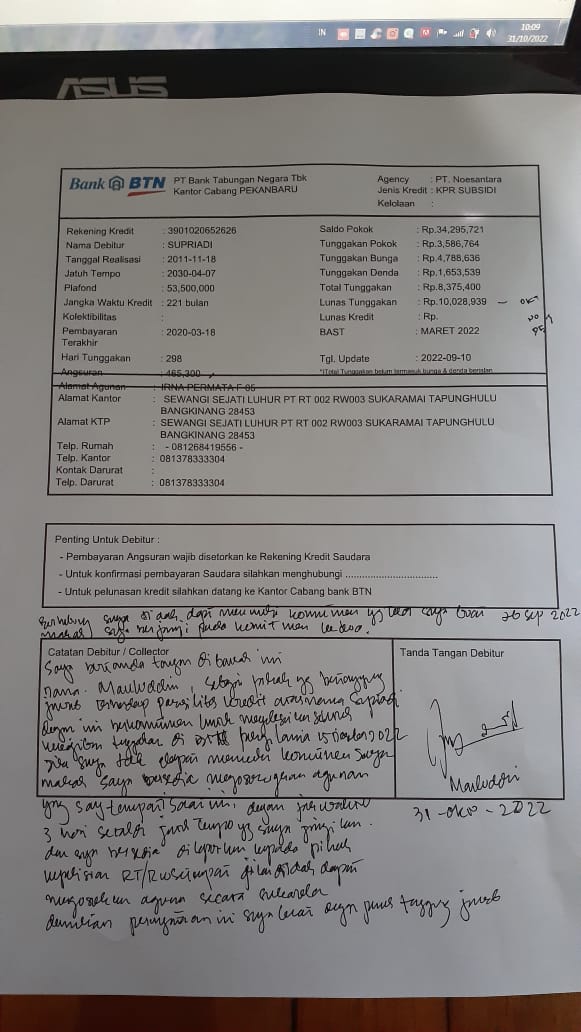 IN
10:09
31/10/2022
ASUS
Bank BTN
PT Bank Tabungan Negara Tbk
Kantor Cabang PEKANBARU
Agency : PT. Noesantara
Jenis Kredit : KPR SUBSIDI
Kelolaan :
Rekening Kredit : 3901020652626
Nama Debitur : SUPRIADI
Tanggal Realisasi : 2011-11-18
Jatuh Tempo : 2030-04-07
Plafond : 53,500,000
Jangka Waktu Kredit : 221 bulan
Kolektibilitas :
Pembayaran : 2020-03-18
Terakhir
Hari Tunggakan : 298
Angsuran : 465,300
Saldo Pokok : Rp.34,295,721
Tunggakan Pokok : Rp.3,586,764
Tunggakan Bunga : Rp.4,788,636
Tunggakan Denda : Rp.1,653,539
Total Tunggakan : Rp.8,375,400
Lunas Tunggakan : Rp.10,028,939
Lunas Kredit : Rp.
BAST : MARET 2022
Tgl. Update : 2022-09-10
*)Total Tunggakan belum termasuk bunga & denda berjalan
Alamat Agunan : IRNA PERMATA F 05
Alamat Kantor : SEWANGI SEJATI LUHUR PT RT 002 RW003 SUKARAMAI TAPUNGHULU
BANGKINANG 28453
Alamat KTP : SEWANGI SEJATI LUHUR PT RT 002 RW003 SUKARAMAI TAPUNGHULU
BANGKINANG 28453
Telp. Rumah : - 081268419556 -
Telp. Kantor : 081378333304
Kontak Darurat :
Telp. Darurat : 081378333304
Penting Untuk Debitur :
- Pembayaran Angsuran wajib disetorkan ke Rekening Kredit Saudara
- Untuk konfirmasi pembayaran Saudara silahkan menghubungi ................................
- Untuk pelunasan kredit silahkan datang ke Kantor Cabang bank BTN
saya tidak dapat memenuhi komitmen yg saya buat 26 Sep 2022
saya berjanji pada komitmen kedua.
Catatan Debitur / Collector
Saya bertanda tangan di bawah ini
nama. Mauluddin, sebagai pihak yg bertanggung
jawab terhadap fasilitas kredit atas nama Supriadi
dengan ini berkomitmen untuk
tunggakan di 2022
jika saya tidak dapat memenuhi komitmen saya
maka saya bersedia mengosongkan agunan
Tanda Tangan Debitur
Mauluddin
31 - okt - 2022
yang saya tempati saat ini, dengan
3 hari setelah jatuh tempo yg saya janjikan.
dan saya bersedia dilaporkan kepada pihak
kepolisian RT/RW jika tidak dapat
mengosongkan agunan secara sukarela
demikian pernyataan ini saya buat dgn penuh tanggung jawab